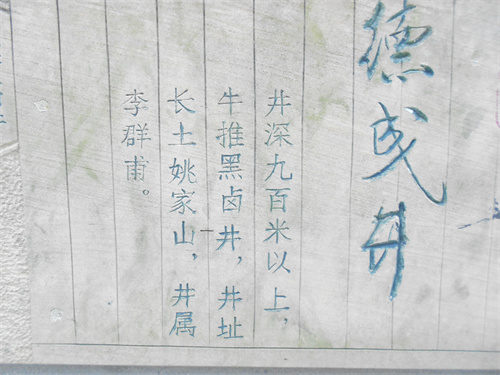 德成井
井深九百米以上，
牛推黑卤井，井址
长土姚家山，井属
李群甫。